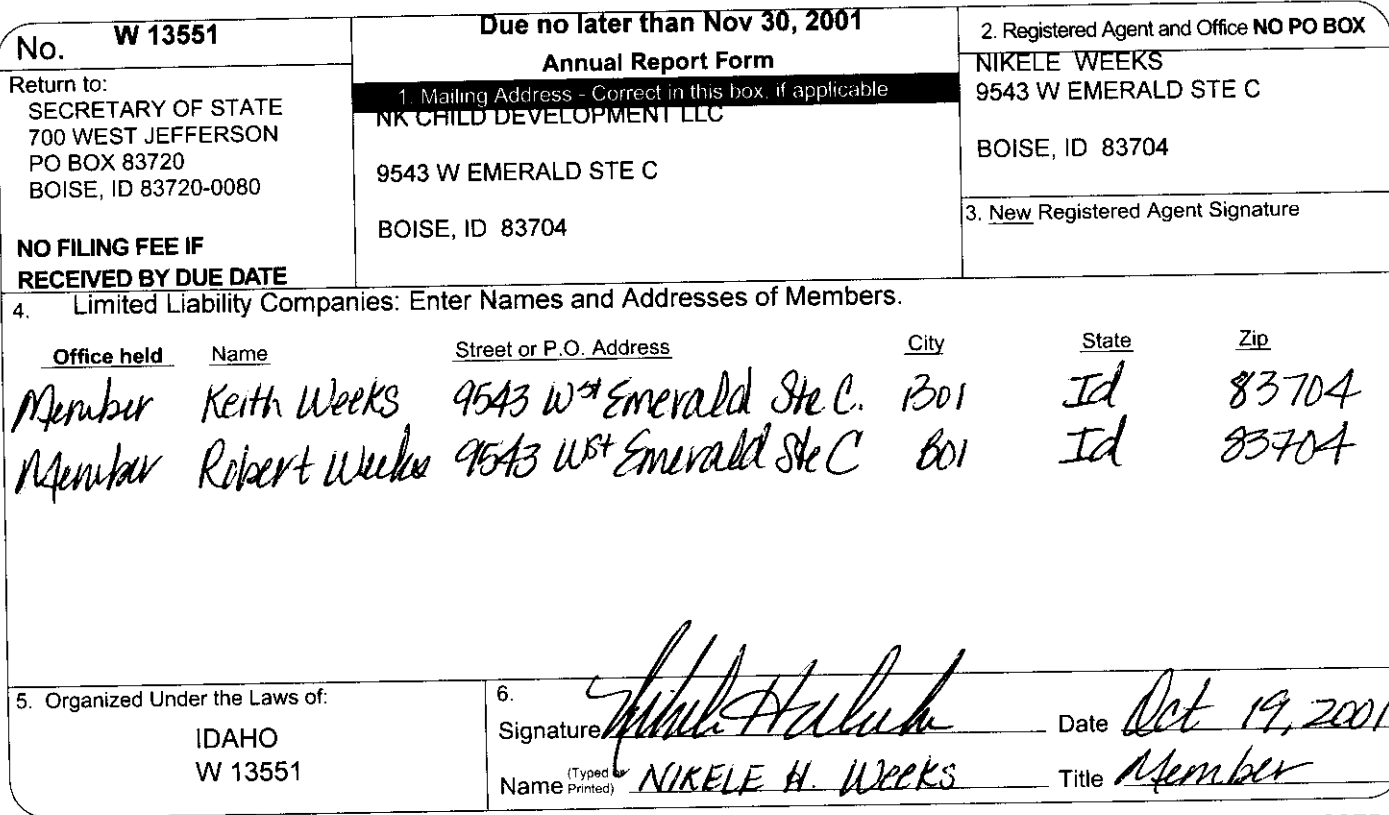 No. W 13551
Return to:
SECRETARY OF STATE
700 WEST JEFFERSON
PO BOX 83720
BOISE, ID 83720-0080
NO FILING FEE IF
RECEIVED BY DUE DATE
Due no later than Nov 30, 2001
Annual Report Form
1. Mailing Address - Correct in this box, if applicable
NK CHILD DEVELOPMENT LLC
9543 W EMERALD STE C
BOISE, ID 83704
2. Registered Agent and Office NO PO BOX
NIKELE WEEKS
9543 W EMERALD STE C
BOISE, ID 83704
3. New Registered Agent Signature
4. Limited Liability Companies: Enter Names and Addresses of Members.
Office held Name Street or P.O. Address City State Zip
Member Keith Weeks 9543 Wst Emerald Ste C. BOI Id 83704
Member Robert Weeks 9543 Wst Emerald Ste C BOI Id 83704
5. Organized Under the Laws of:
IDAHO
W 13551
6.
Signature Date Oct 19, 2001
Name (Typed or Printed) NIKELE H. Weeks Title Member